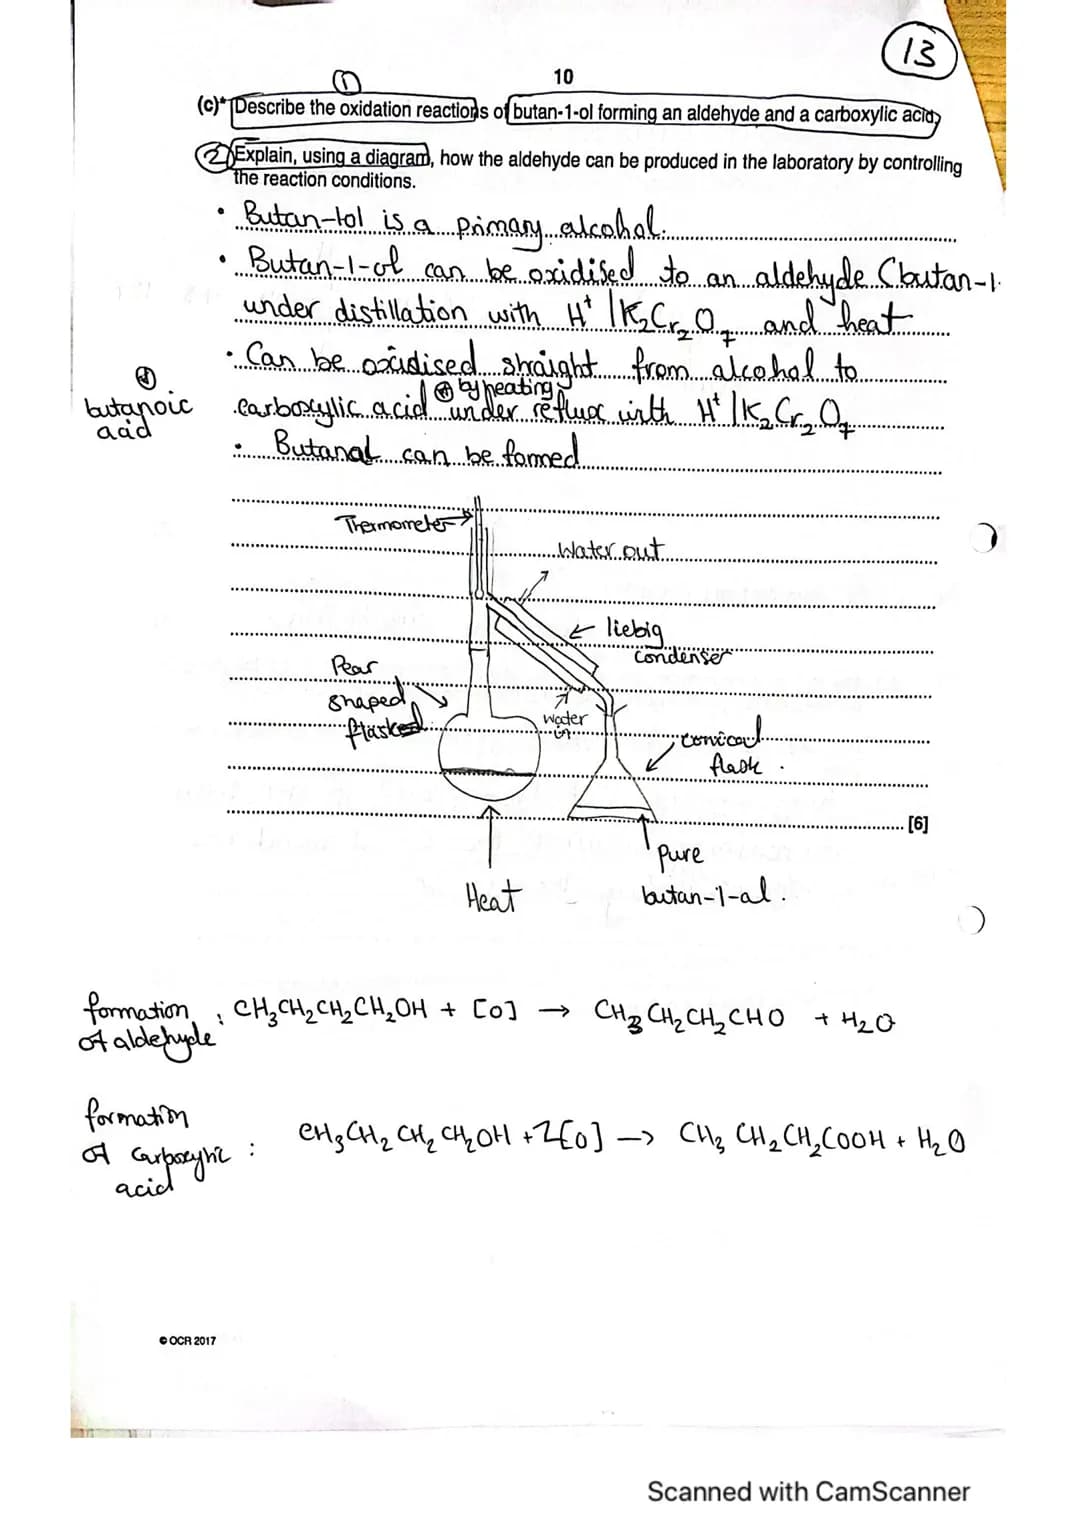 13
10
①
(c)* Describe the oxidation reactions of butan-1-ol forming an aldehyde and a carboxylic acid
② Explain, using a diagram, how the aldehyde can be produced in the laboratory by controlling
the reaction conditions.
• Butan-1ol is a primary alcohol.
• Butan-1-ol can be oxidised to an aldehyde (butan-1-
under distillation with H⁺/K₂Cr₂O₇ and heat
• Can be oxidised straight from alcohol to
⊛ by heating
⊛ butanoic acid
carboxylic acid under reflux with H⁺/K₂Cr₂O₇
• Butanal can be formed
Thermometer
Water out
liebig
condenser
Pear
shaped
flasked
water
in
conical
flask.
[6]
Heat
pure
butan-1-al.
formation of aldehyde: CH₃CH₂CH₂CH₂OH + [O] → CH₃CH₂CH₂CHO + H₂O
formation of carboxylic acid: CH₃CH₂CH₂CH₂OH + 2[O] → CH₃CH₂CH₂COOH + H₂O
© OCR 2017
Scanned with CamScanner